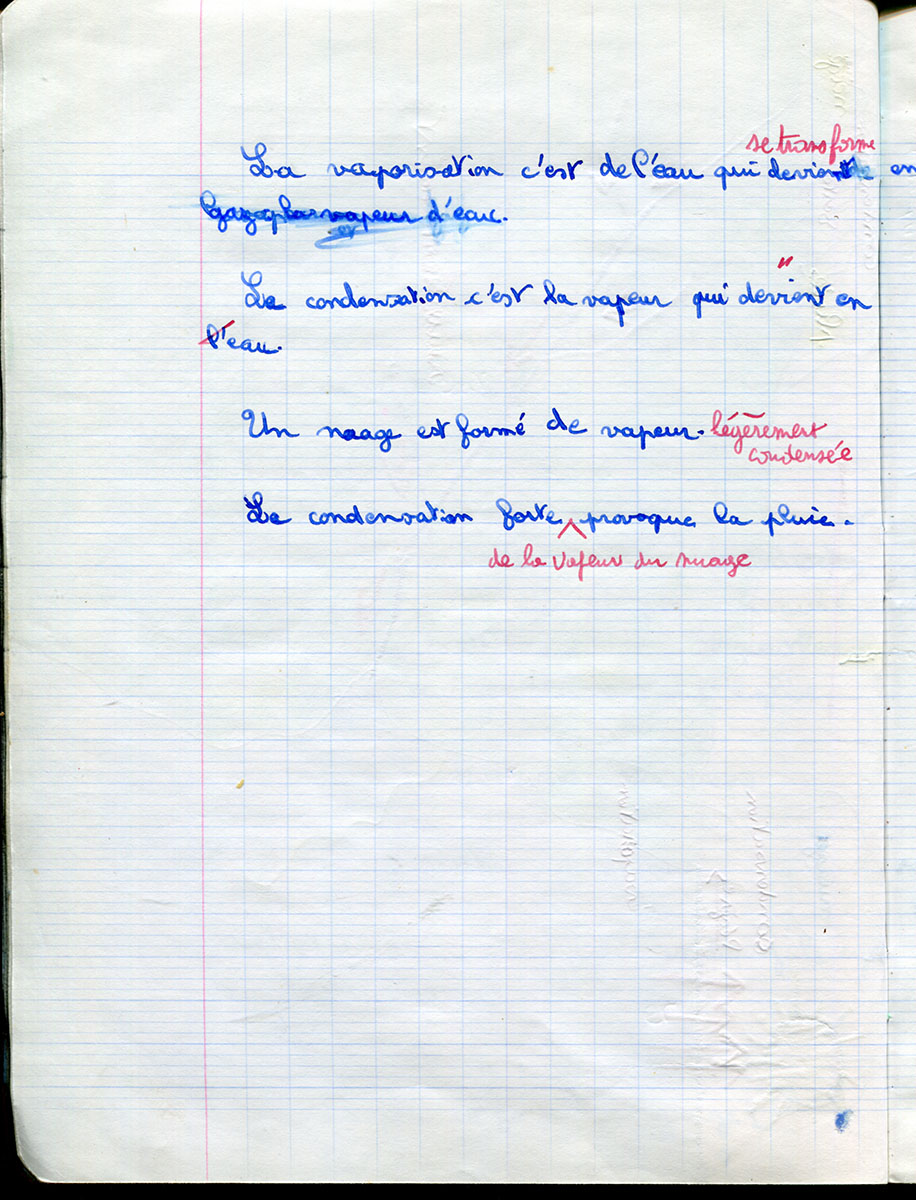 se transforme
La vaporisation c'est de l'eau qui devient en
vapeur d'eau.
"
La condensation c'est la vapeur qui devient en
l'eau.
Un nuage est formé de vapeur. légèrement
condensée
La condensation forte provoque la pluie.
de la vapeur du nuage